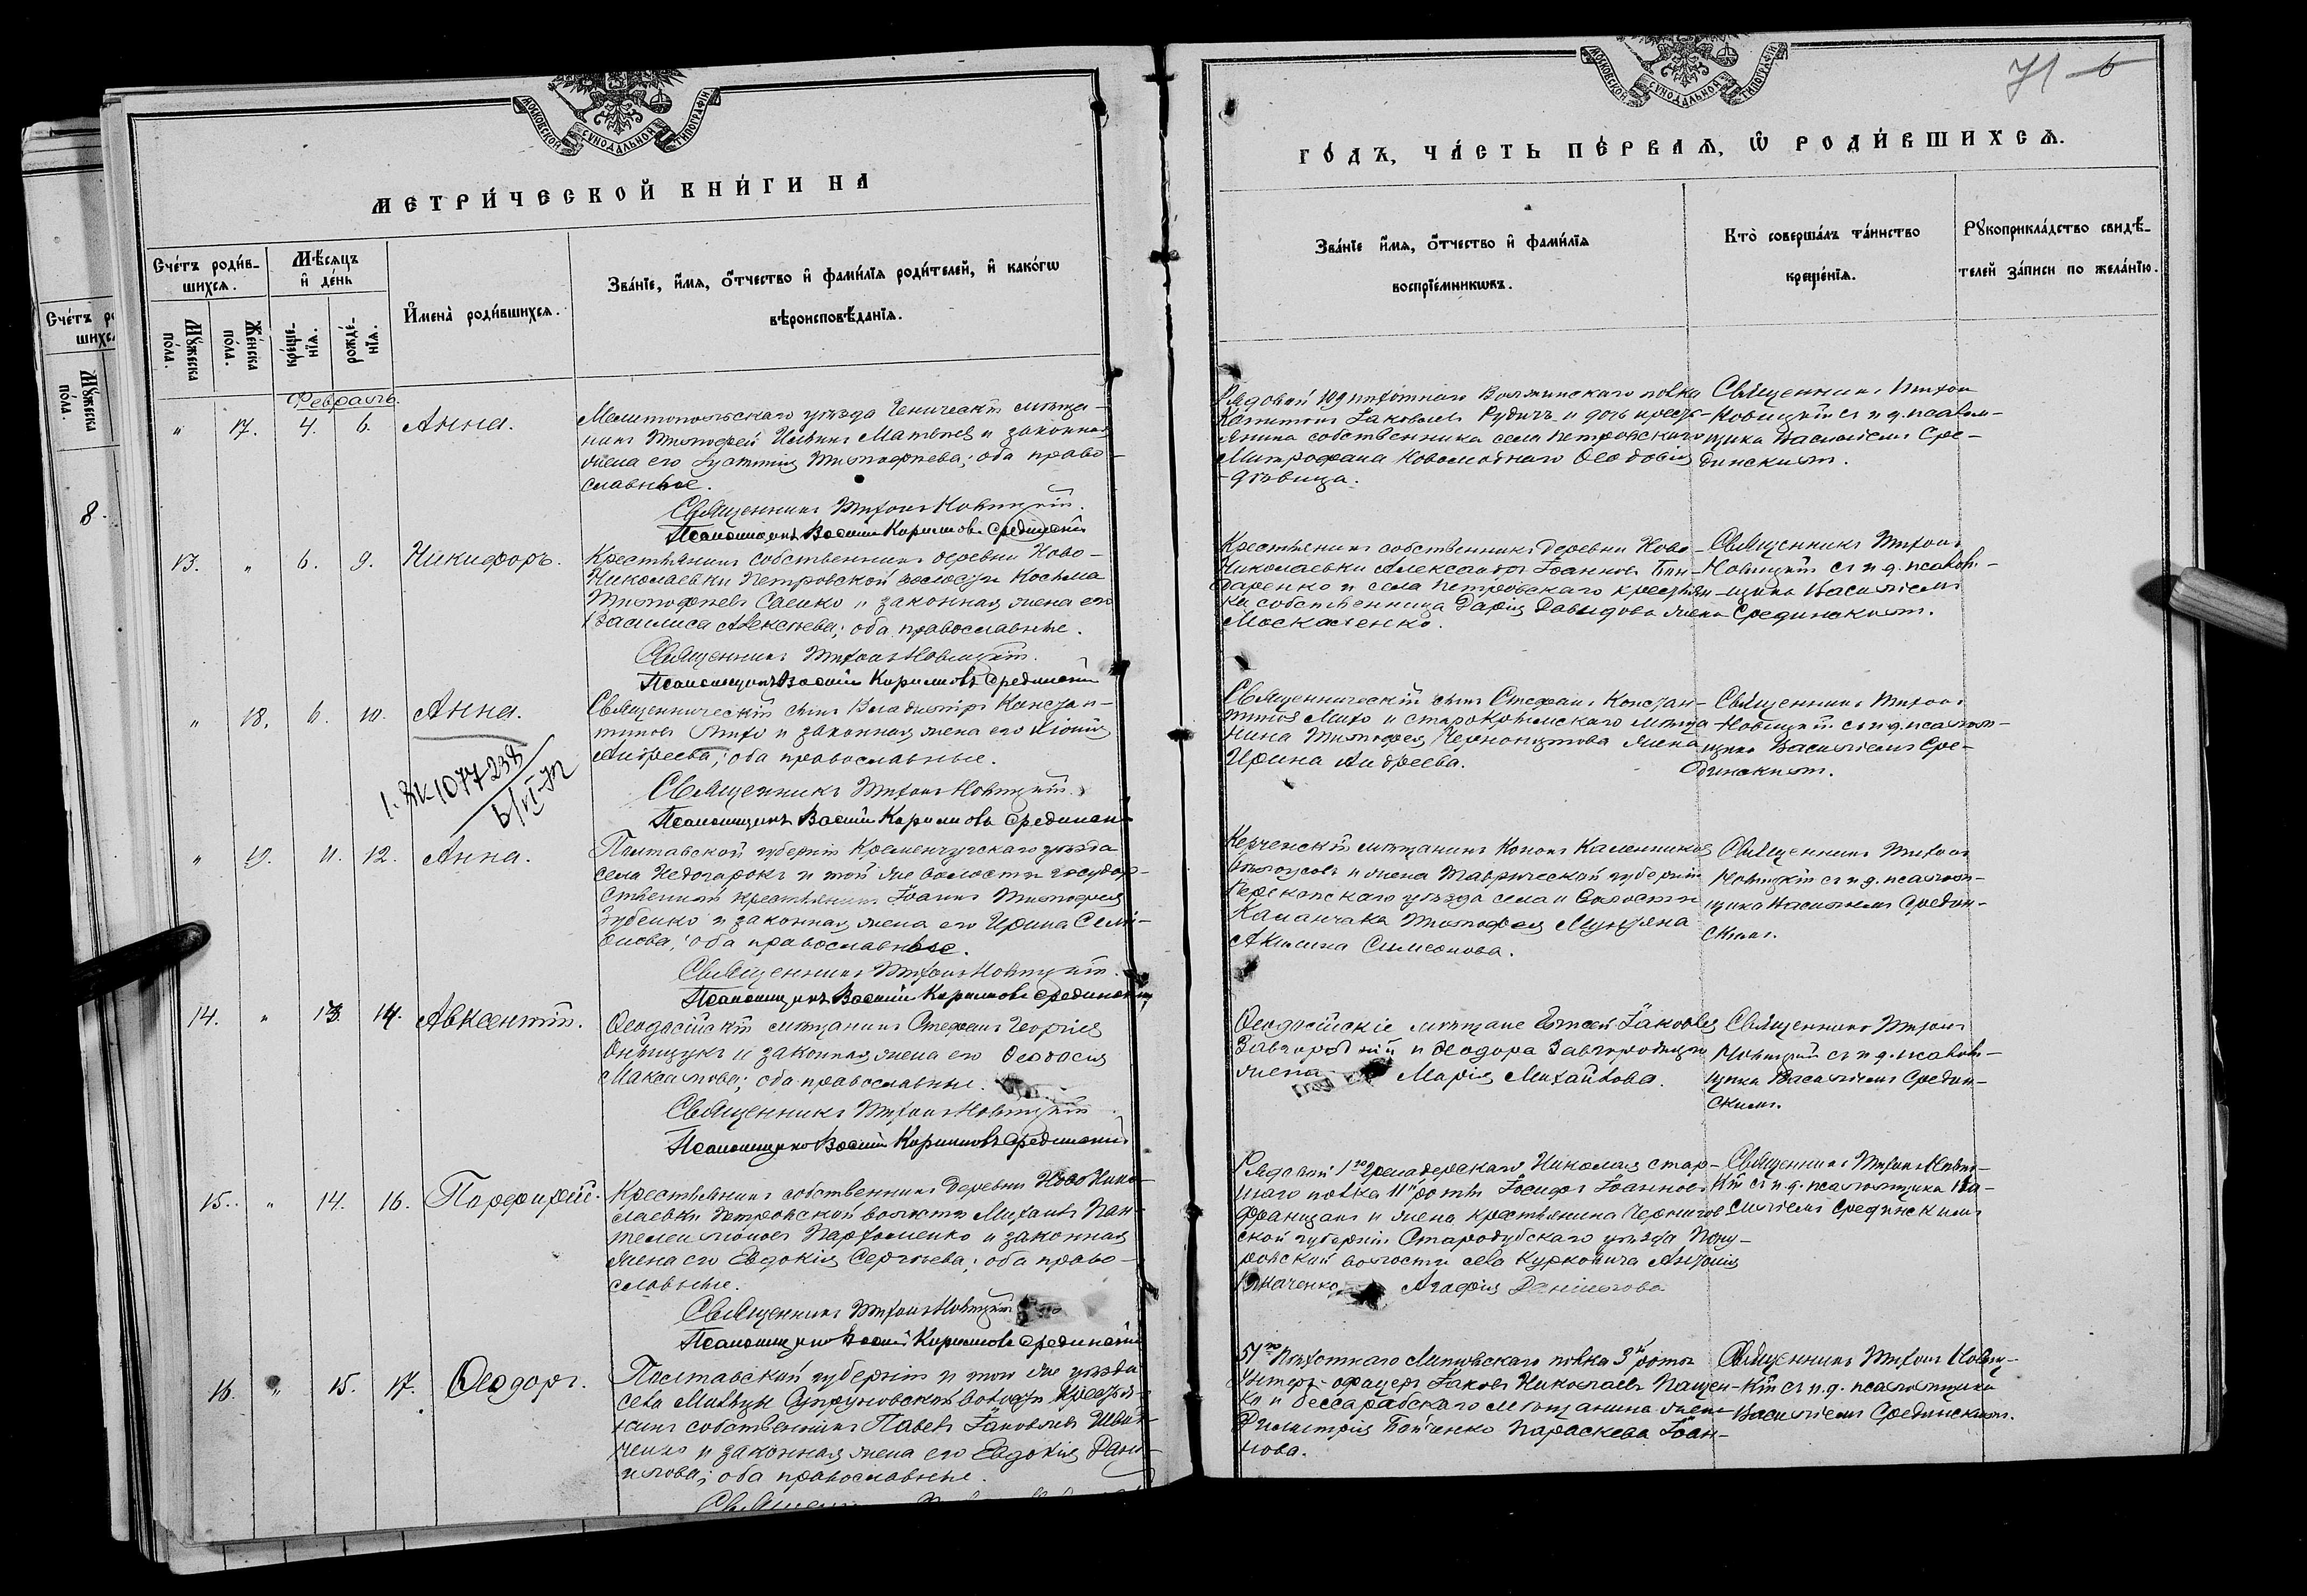 МОСКОВСКОЙ СУНОДАЛЬНОЙ ТИПОГРАФІИ
МЕТРИ́ЧЕСКОЙ КНИ́ГИ НА
Сче́тъ роди́в-
шихсѧ.
Мѣ́сѧцъ
и҆ де́нь
Мꙋ́жеска
по́ла.
Же́нска
по́ла.
креще-
нїѧ.
рожде́-
нїѧ.
И҆мена̀ роди́вшихсѧ.
Зва́нїе, и҆́мѧ, ѻ҆́тчество и҆ фами́лїѧ роди́телей, и҆ како́гѡ
вѣроисповѣ́данїѧ.
Февраль.
" 17. 4. 6. Анна.
Мелитопольскаго уѣзда Генический мѣща-
нинъ Тимофей Ильинъ Матвѣев и законная
жена его Тимофеева; оба право-
славные.
Священникъ Тихон Новицкій.
Псаломщикъ Василій Кириллов Срединский
13. " 6. 9. Никифоръ.
Крестьянинъ собственникъ деревни Ново-
Николаевки Петровской волости Косьма
Тимофеевъ Саенко и законная жена его
Василиса Алексѣева; оба православные.
Священникъ Тихонъ Новицкій.
Псаломщикъ Василій Кирилловъ Срединский
" 18. 6. 10. Анна.
Священнический сынъ Владимиръ Констан-
тиновъ и законная жена его Ксенія
Андреева; оба православные.
1-ЯК 1077238
6/VI-72
Священникъ Тихонъ Новицкій.
Псаломщикъ Василій Кириллова Срединский
" 19. 11. 12. Анна.
Полтавской губерніи Кременчугскаго уѣзда
села Недогарокъ и той же волости государ-
ственный крестьянинъ Іоаннъ Тимофеев
Зубенко и законная жена его Ирина Семі-
онова; оба православные.
Священникъ Тихонъ Новицкій.
Псаломщикъ Василій Кириллов Срединский
14. " 13. 14. Авксентій.
Ѳеодосійскій мѣщанинъ Стефанъ Георгіев
Онищукъ и законная жена его Ѳеодосія
Максимова; оба православные.
Священникъ Тихонъ Новицкій
Псаломщикъ Василій Кирилловъ Срединский
15. " 14. 16. Порфирій.
Крестьянинъ собственникъ деревни Ново Нико-
лаевки Петровской волости Михаилъ Пан-
телеимонов Пархоменко и законная
жена его Евдокія Сергѣева; оба право-
славные.
Священникъ Тихонъ Новицкій
Псаломщикъ Василій Кириллов Срединский
16. " 15. 17. Ѳеодоръ.
Полтавской губерніи и того же уѣзда
села Мильцы Супруновской волости крестья-
нинъ собственникъ Павелъ Іаковлевъ Шевч-
ченко и законная жена его Евдокія Дани-
илова; оба православные.
8.
71 6
МОСКОВСКОЙ СУНОДАЛЬНОЙ ТИПОГРАФІИ
ГО́ДЪ, ЧА́СТЬ ПЕ́РВАѦ, Ѡ҆ РОДИ́ВШИХСѦ.
Зва́нїе и҆́мѧ, ѻ҆́тчество и҆ фами́лїѧ
воспрїе́мникѡвъ.
Кто̀ соверша́лъ та́инство
креще́нїѧ.
Рꙋкоприкла́дство свидѣ́-
телей за́писи по жела́нїю.
Рядовой 109 пѣхотнаго Волжинскаго полка
Капитонъ Іаковлевъ Рудичъ и дочь кресть-
янина собственника села Петровскаго
Митрофана Новомодного Ѳеодосія
-дѣвица.
Священникъ Тихон
Новицкій съ и д. псалом-
щика Василіемъ Сре-
динскимъ.
Крестьянинъ собственникъ деревни Ново-
Николаевки Александръ Іоанновъ Бон-
даренко и села Петровскаго крестьян-
ка собственница Дарія Давыдова жена
Москаленко.
Священникъ Тихонъ
Новицкій съ и д. псалом-
щика Василіемъ
Срединскимъ.
Священнический сынъ Стефанъ Констан-
тиновъ и старокрымскаго мѣща-
нина Тимофея Чернощитова жена
Ирина Андреева.
Священникъ Тихонъ
Новицкій съ и д. псалом-
щика Василіемъ Сре-
динскимъ.
Керченскій мѣщанинъ Кононъ Калинников
Бѣлоусовъ и жена Таврической губерніи
Перекопскаго уѣзда села и волости
Каланчака Тимофея Мунтяна
Акилина Симеонова.
Священникъ Тихонъ
Новицкій съ и д. псалом-
щика Василіемъ Средин-
скимъ.
Ѳеодосійскіе мѣщане Іаковлев
Завгородній и Ѳеодора Завгородняго
жена Марія Михайлова.
Священникъ Тихонъ
Новицкій съ и д. псалом-
щика Василіемъ Средин-
скимъ.
Рядовой 1го Гренадерскаго Николая стар-
шаго полка 11й роты Іосифъ Іоаннов
и жена крестьянина Чернигов
ской губерніи Стародубскаго уѣзда Пону-
ровской волости села Курковича Антонія
Ткаченко Агафія Даниілова
Священникъ Тихонъ Новиц-
кій съ и д. псаломщика Ва-
силіемъ Срединскимъ
51го Пѣхотнаго Литовскаго полка 3й роты
Унтеръ-офицеръ Іаковъ Николаевъ Пащен-
ко и бессарабскаго мѣщанина жена
Димитрія Бойченко Параскева Іоан-
нова.
Священникъ Тихонъ Новиц-
кій съ и д. псаломщика
Василіемъ Срединскимъ.